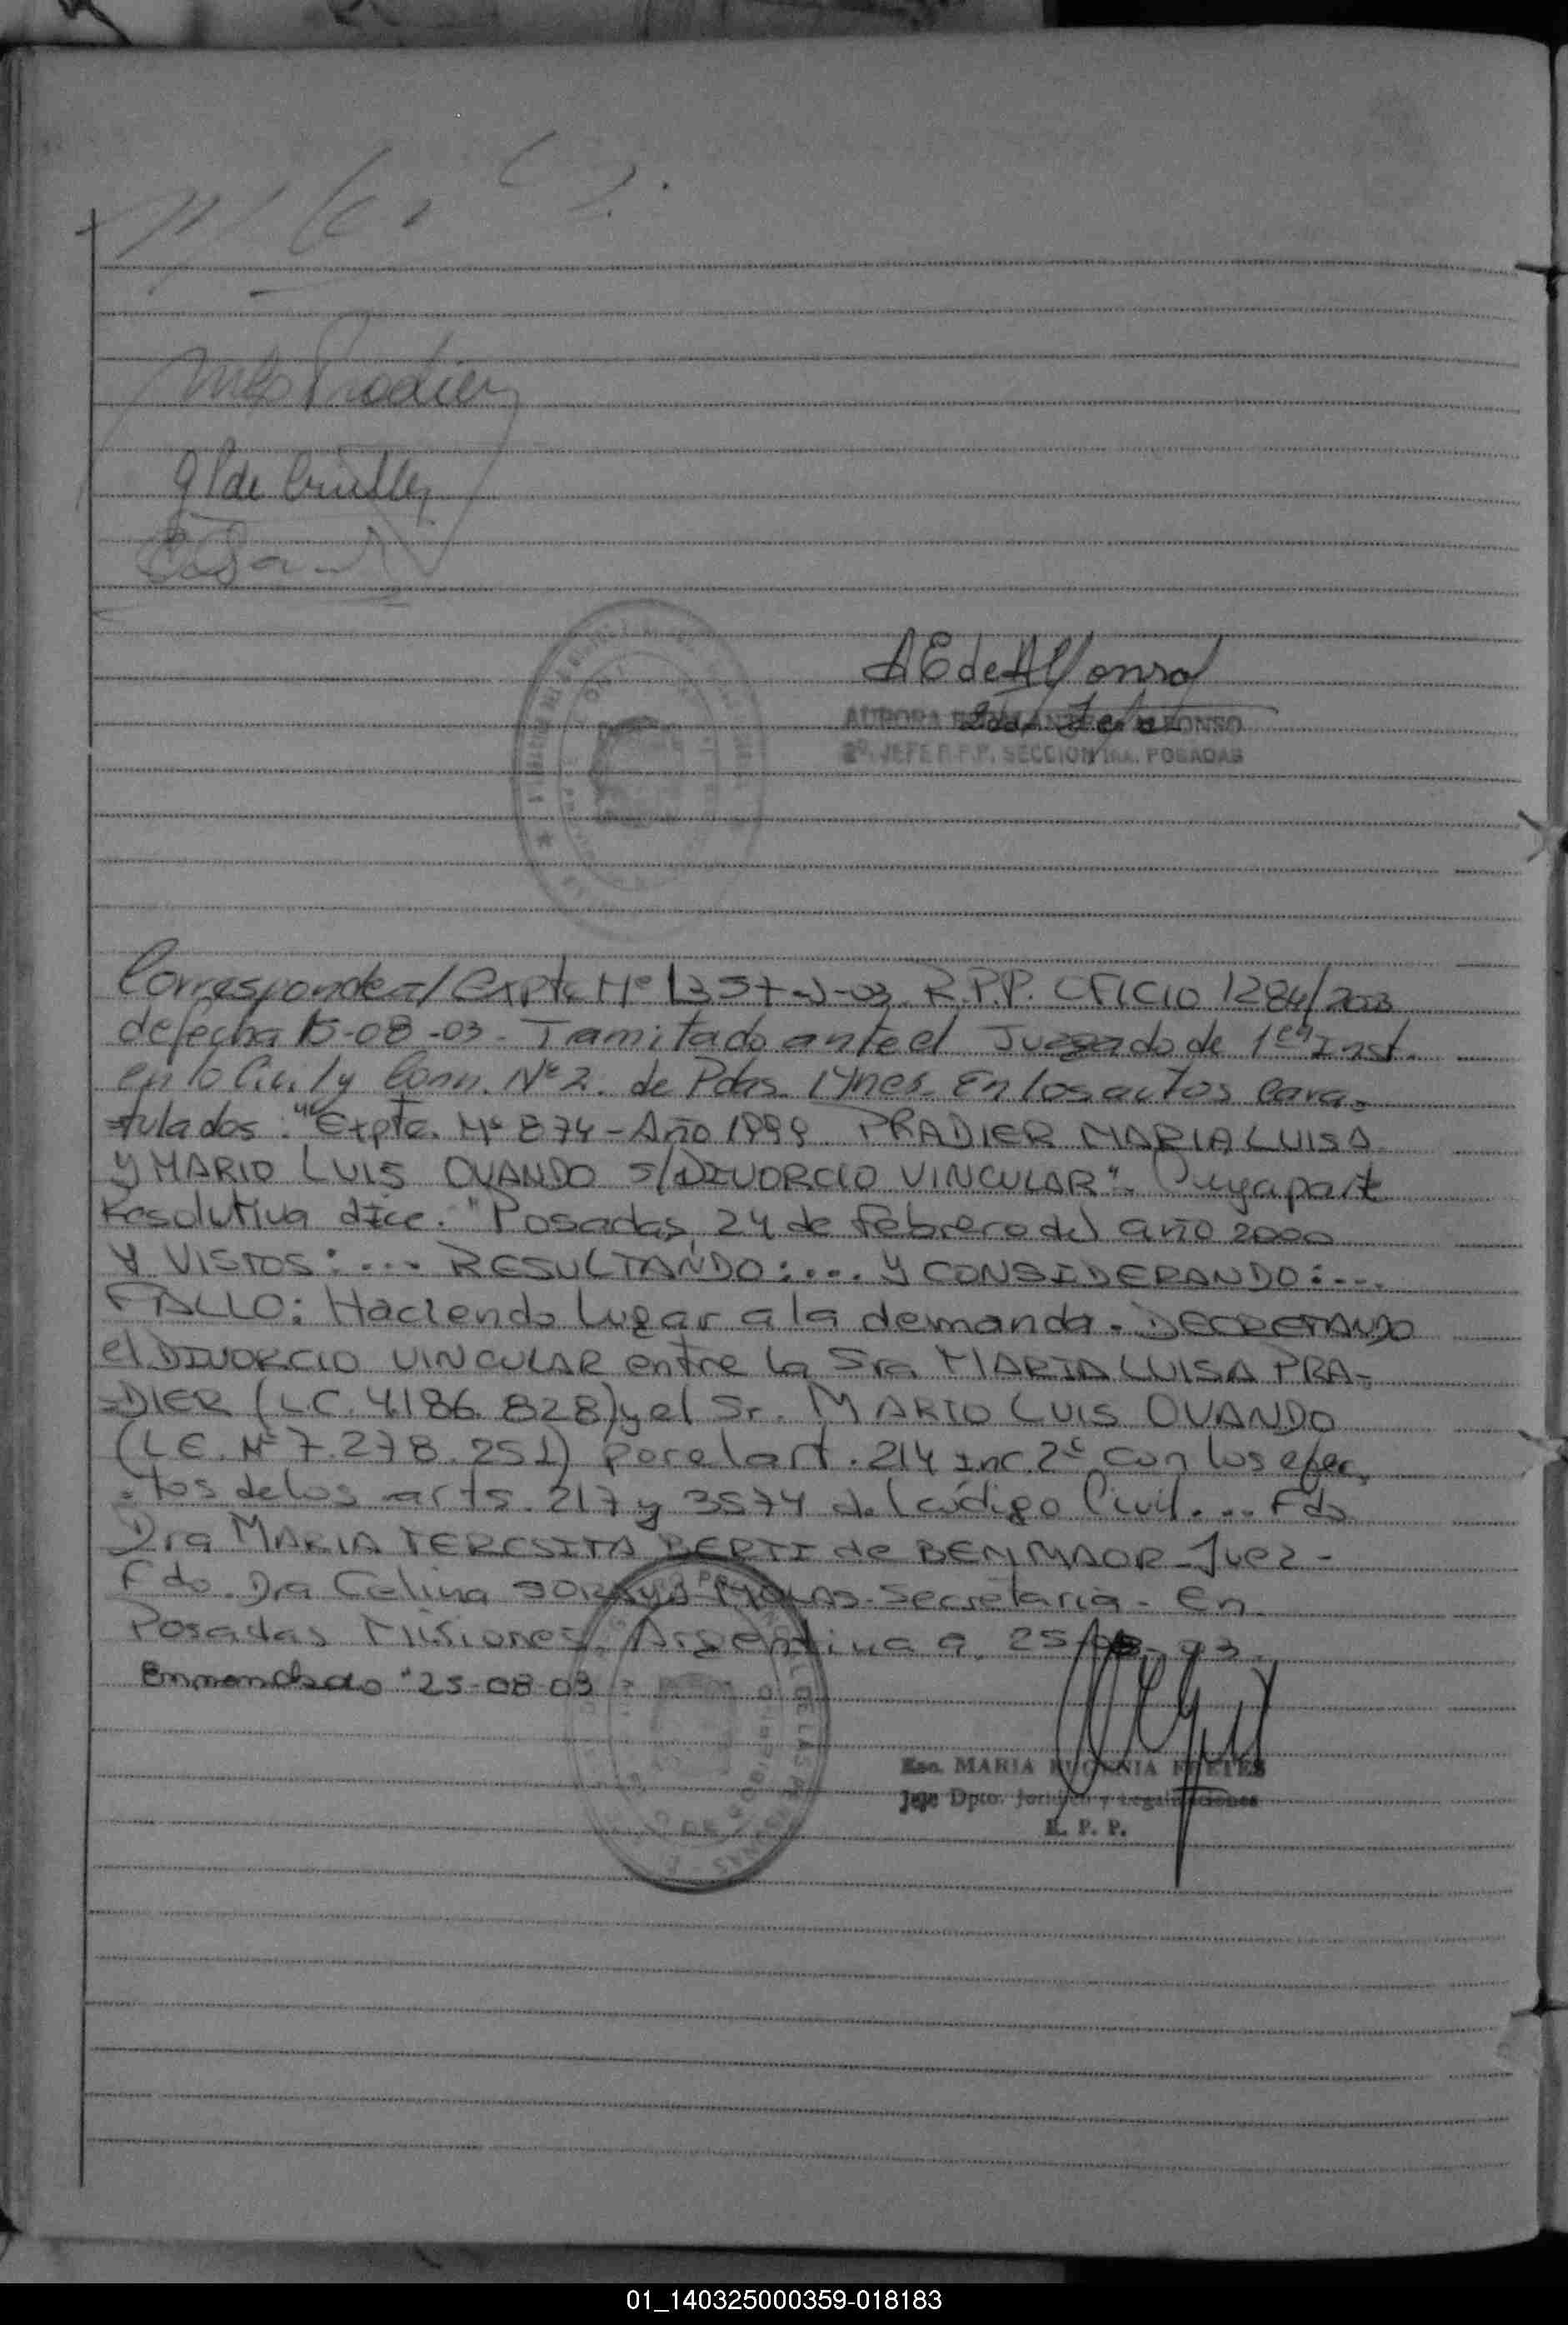 Pradier
AE de Alfonso
2da Jefa
AURORA ALFONSO
2º. JEFE R.P.P. SECCION 1ra. POSADAS
Corresponde al Expte Nº 1357-J-03 R.P.P. OFICIO 1284/2003
de fecha 15-08-03 - Tamitado ante el Juzgado de 1era Inst.
en lo Civil y Com. Nº 2. de Pdas. Mnes. En los autos cara-
tulados: "Expte. Nº 874 - Año 1999 PRADIER MARIA LUISA
Y MARIO LUIS OVANDO S/DIVORCIO VINCULAR". Cuya parte
Resolutiva dice: "Posadas, 24 de febrero del año 2000
Y VISTOS: .... RESULTANDO: .... Y CONSIDERANDO: ....
FALLO: Haciendo lugar a la demanda. DECRETANDO
el DIVORCIO VINCULAR entre la Sra MARIA LUISA PRA-
=DIER (L.C. 4.186.828) y el Sr. MARIO LUIS OVANDO
(L.E. Nº 7.278.251) por el art. 214 inc. 2º con los efec-
-tos de los arts. 217 y 3574 del código Civil.... Fdo
Dra MARIA TERESITA BERTI de BENMAOR - Juez -
Fdo. Dra Celina SORAYA MOLAS - Secretaria - En
Posadas Misiones, Argentina a, 25-08-03.
Enmendado "25-08-03
Esc. MARIA EUGENIA FRETES
Jefe Dpto. Jurídico y Legalizaciones
R. P. P.
01_140325000359-018183